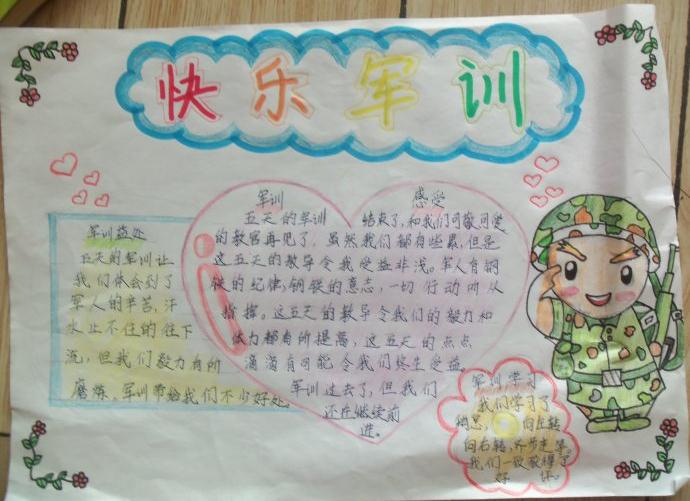 快乐军训
军训益处
五天的军训让
我们体会到了
军人的辛苦，汗
水止不住的往下
流，但我们毅力有所
磨炼。军训带给我们不少好处。
军训 感受
五天的军训 结束了，和我们可敬可爱
的教官再见了，虽然我们都有些累，但是
这五天的教导令我受益非浅。军人有钢
铁的纪律，钢铁的意志，一切行动听从
指挥。这五天的教导令我们的毅力和
体力都有所提高，这五天的点点
滴滴有可能令我们终生受益。
军训过去了，但我们
还在继续前
进。
军训学习
我们学习了
稍息， 向左转
向右转，齐步走等。
我们一致获得了
好 评。